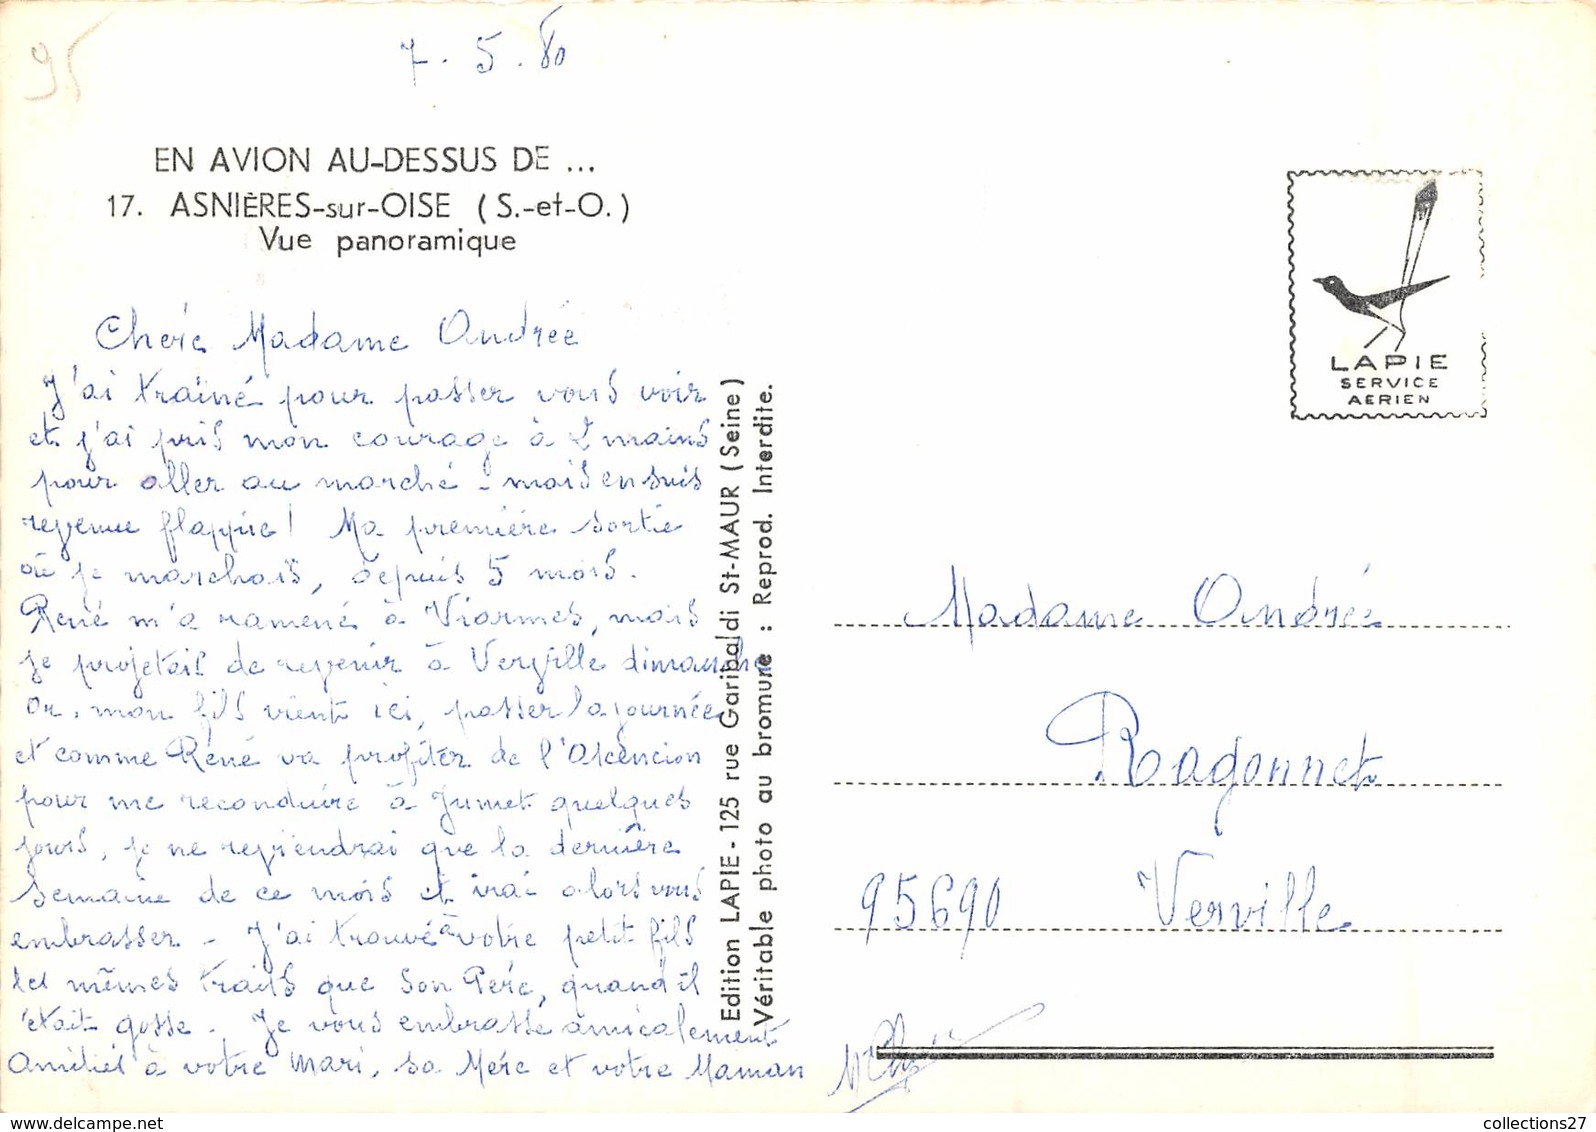 95
7.5.80
EN AVION AU-DESSUS DE ...
17. ASNIÈRES-sur-OISE (S.-et-O.)
Vue panoramique
Chère Madame Andrée
J'ai traîné pour passer vous voir
et j'ai pris mon courage à 2 mains
pour aller au marché - mais en suis
revenue flappie! Ma première sortie
où je marchais, depuis 5 mois.
René m'a ramené à Viarmes, mais
je projetais de revenir à Verville dimanche
or, mon fils vient ici, passer la journée
et comme René va profiter de l'Ascencion
pour me reconduire à Jumet quelques
jours, je ne reviendrai que la dernière
semaine de ce mois et irai alors vous
embrasser - J'ai trouvé à votre petit fils
les mêmes traits que son Père, quand il
était gosse - Je vous embrasse amicalement
Amitiés à votre mari, sa Mère et votre Maman
Edition LAPIE - 125 rue Garibaldi St-MAUR (Seine)
Véritable photo au bromure : Reprod. Interdite.
LAPIE
SERVICE
AERIEN
Madame Andrée
Ragonnet
95690 Verville
collections27